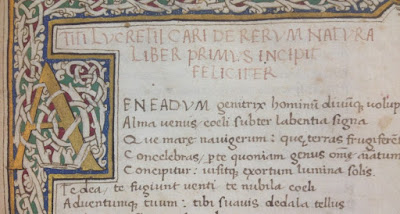 TITI LUCRETII CARI DE RERUM NATURA
LIBER PRIMUS INCIPIT
FELICITER
AENEADVM genitrix hominū divūq; volup
Alma venus: coeli subter labentia signa
Que mare navigerum: que terras frugiferē
Concelebras, pte quoniam genus omē aīatum
Concipitur: visitq; exortum lumina solis.
Te dea, te fugiunt venti te nubila coeli
Adventumque tuum: tibi suavis dedala tellus